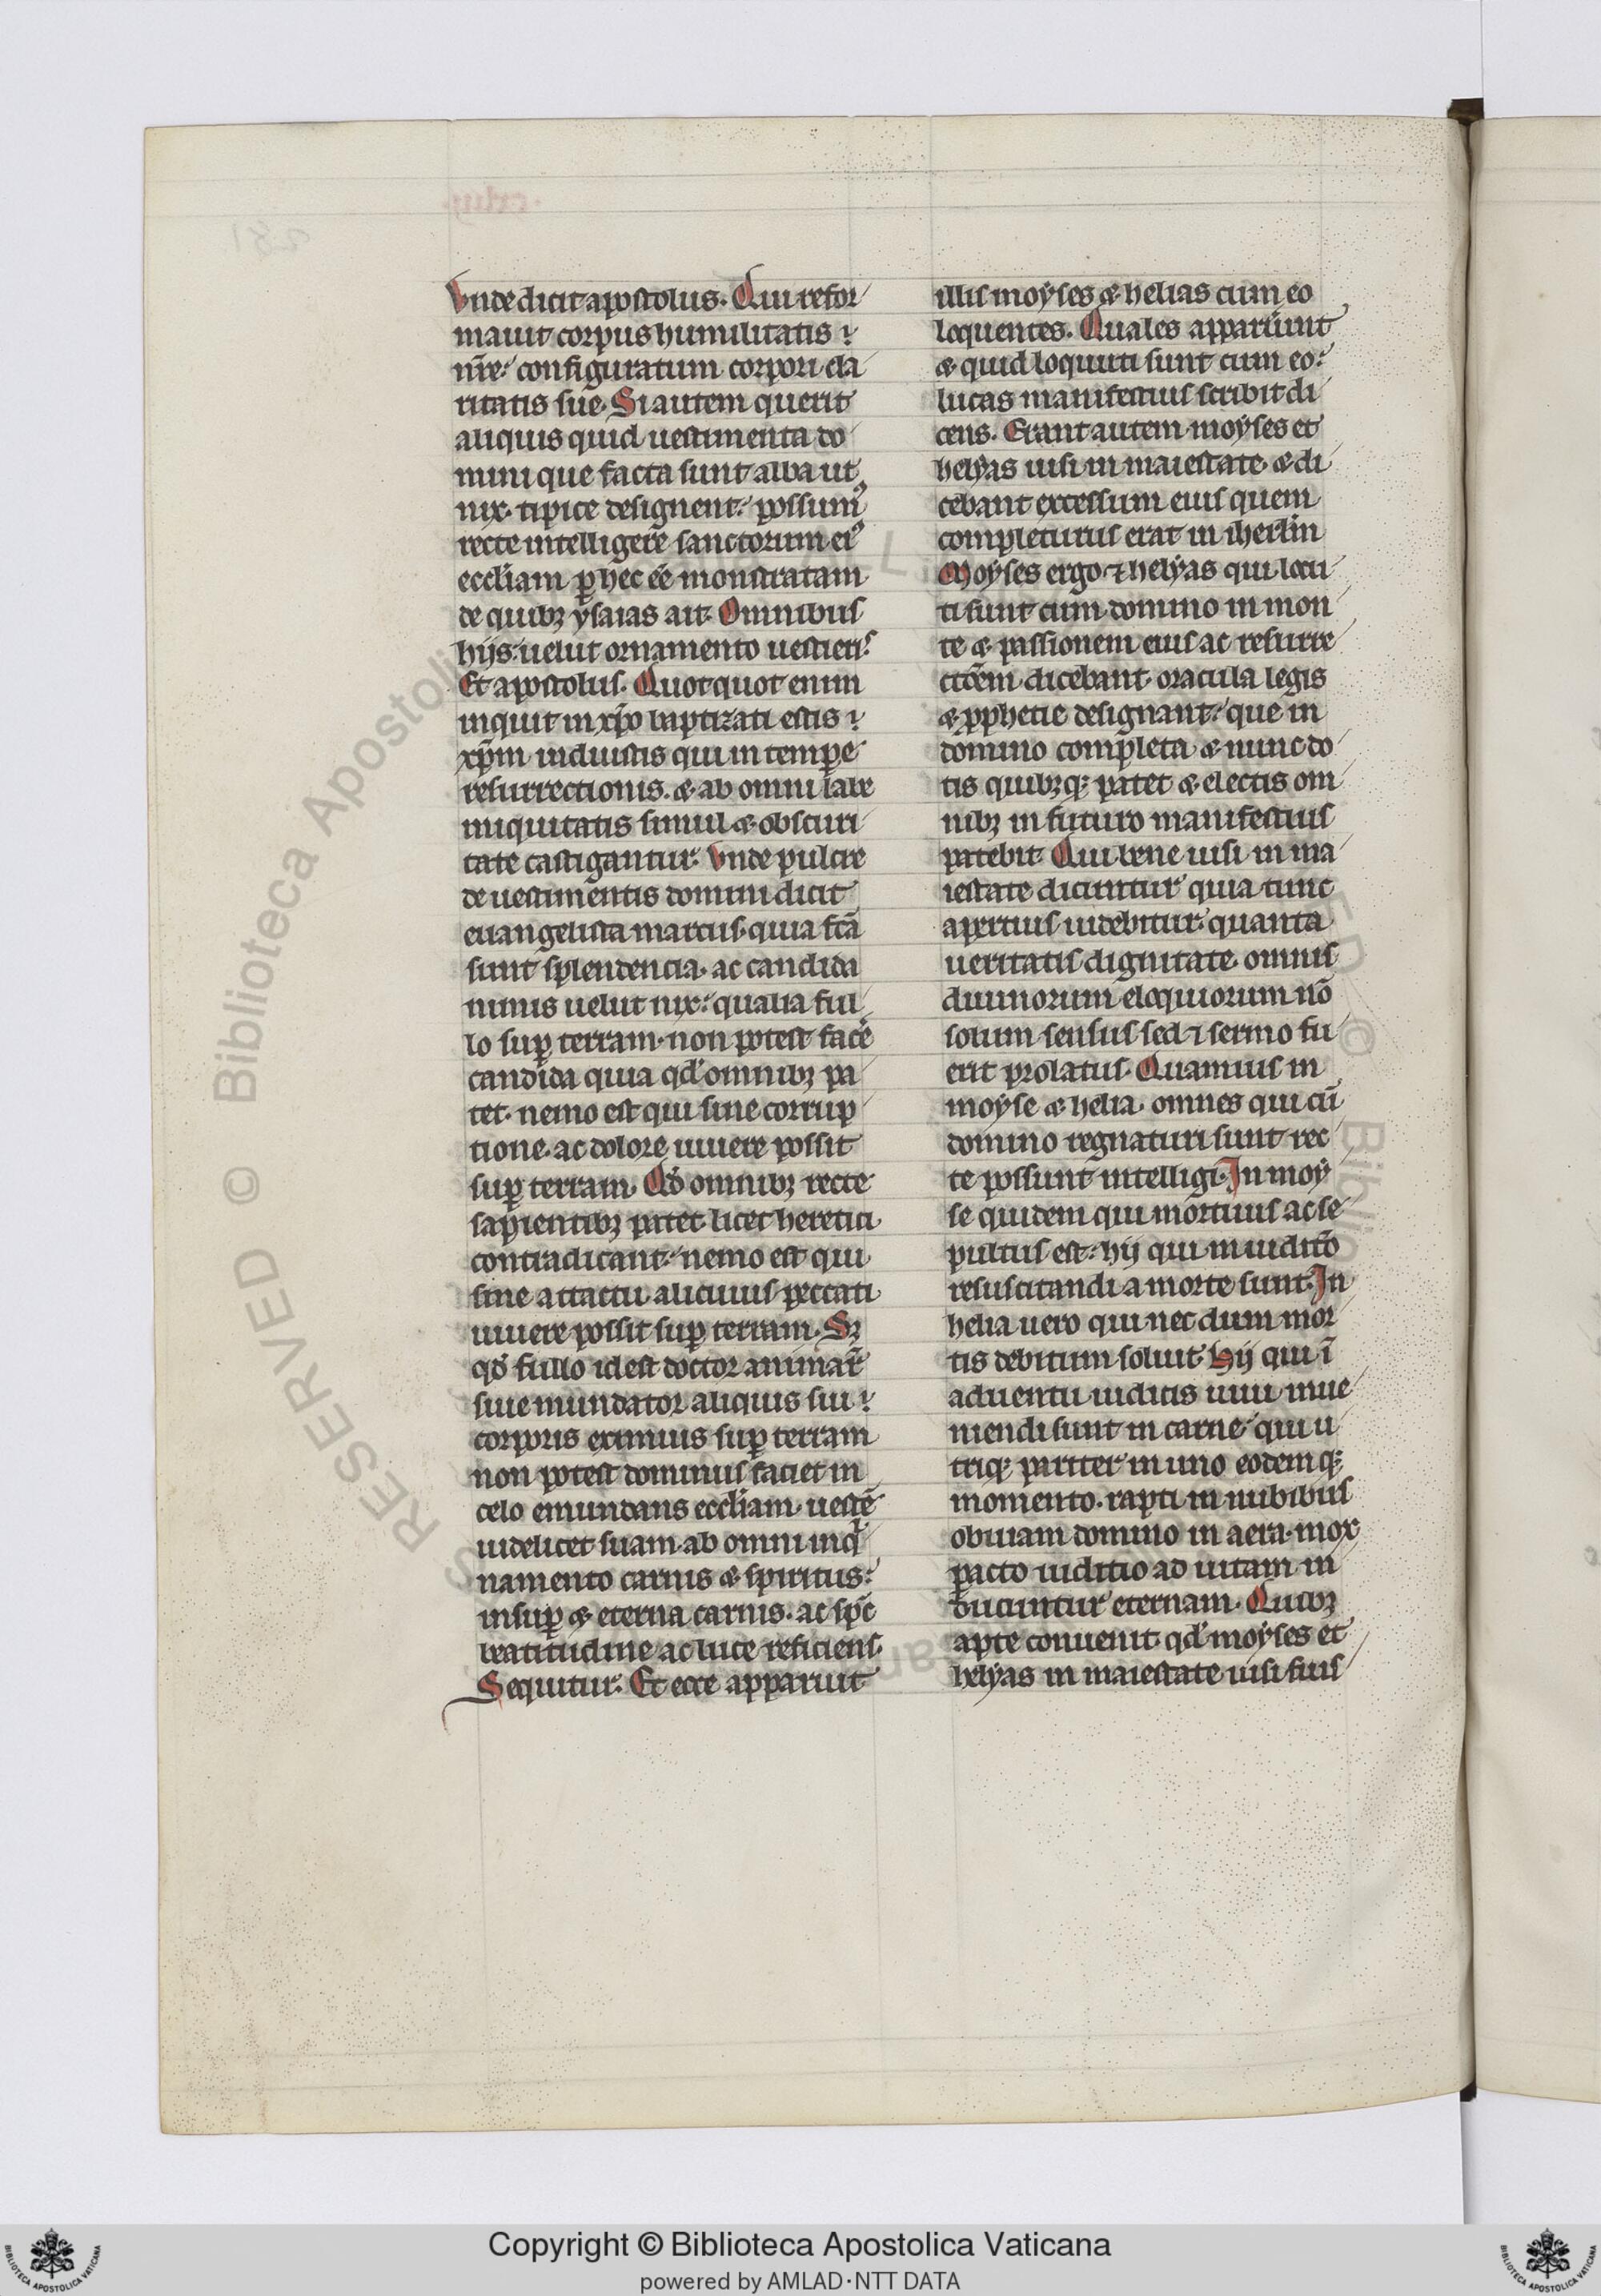 Vnde dicit apostolus. Qui refor
mauit corpus humilitatis
nr̄e: configuratum corpori cla
ritatis sue. Si autem querit
aliquis quid uestimenta do
mini que facta sunt alba ut
nix. tipice designent: possumꝰ
recte intelligere sanctorum eiꝰ
eccl̄iam ꝑ hec eē monstratam
de quibꝫ ysaias ait. Omnibus
hijs uelut ornamento uestieris
Et apostolus. Quotquot enim
inquit in xp̄o baptizati estis
xp̄m induistis qui in tempe
resurrectionis. & ab omni labe
iniquitatis simul & obscuri
tate castigantur. Vnde pulcre
de uestimentis domini dicit
euangelista marcus. quia fc̄a
sunt splendencia. ac candida
nimis uelut nix: qualia ful
lo suꝑ terram. non potest face᷒
candida quia qđ omnibꝫ pa
tet. nemo est qui sine corrup
tione. ac dolore uiuere possit
suꝑ terram. Qđ omnibꝫ recte
sapientibꝫ patet licet heretici
contradicant: nemo est qui
sine attactu alicuius peccati
uiuere possit suꝑ terram. Sꝫ
qđ fullo id est doctor animaꝝ
siue mundator aliquis sui
corporis eximius suꝑ terram
non potest dominus faciet in
celo emundans eccl̄iam. uestē
uidelicet suam. ab omni inqͥ
namento carnis & spiritus:
insuꝑ & eterna carnis. ac spc̄
beatitudine ac luce reficiens.
Sequitur. Et ecce apparuit
illis moyses & helias cum eo
loquentes. Quales apparuerunt
& quid loquuti sunt cum eo:
lucas manifestius scribit di
cens. Erant autem moyses et
helyas uisi in maiestate. & di
cebant excessum eius quem
completurus erat in ihrl̄m
Moyses ergo & helyas qui locu
ti sunt cum domino in mon
te & passionem eius ac resurre
ctōem dicebant. oracula legis
& ꝓphetie designant: que in
domino completa & nunc do
tis quibꝫqꝫ patet & electis om
nibꝫ in futuro manifestius
patebit. Qui bene uisi in ma
iestate dicuntur quia tunc
apertius uidebitur quanta
ueritatis dignitate omnis
diuinorum eloquiorum nō
solum sensus sed & sermo fu
erit prolatus. Quamuis in
moyse & helia. omnes qui cū
domino regnaturi sunt rec
te possunt intelligi. In moy
se quidem qui mortuus ac se
pultus est: hij qui in iuditō
resuscitandi a morte sunt. In
helia uero qui nec dum mor
tis debitum soluit. Hij qui ī
aduentu iudicis uiui inue
niendi sunt in carne. qui u
triqꝫ pariter in uno eodemqꝫ
momento. rapti in nubibus
obuiam domino in aera. mox
ꝑacto iuditio ad uitam in
ducuntur eternam. Quibꝫ
apte conuenit qđ moyses et
helyas in maiestate uisi fuis
Copyright © Biblioteca Apostolica Vaticana
powered by AMLAD·NTT DATA